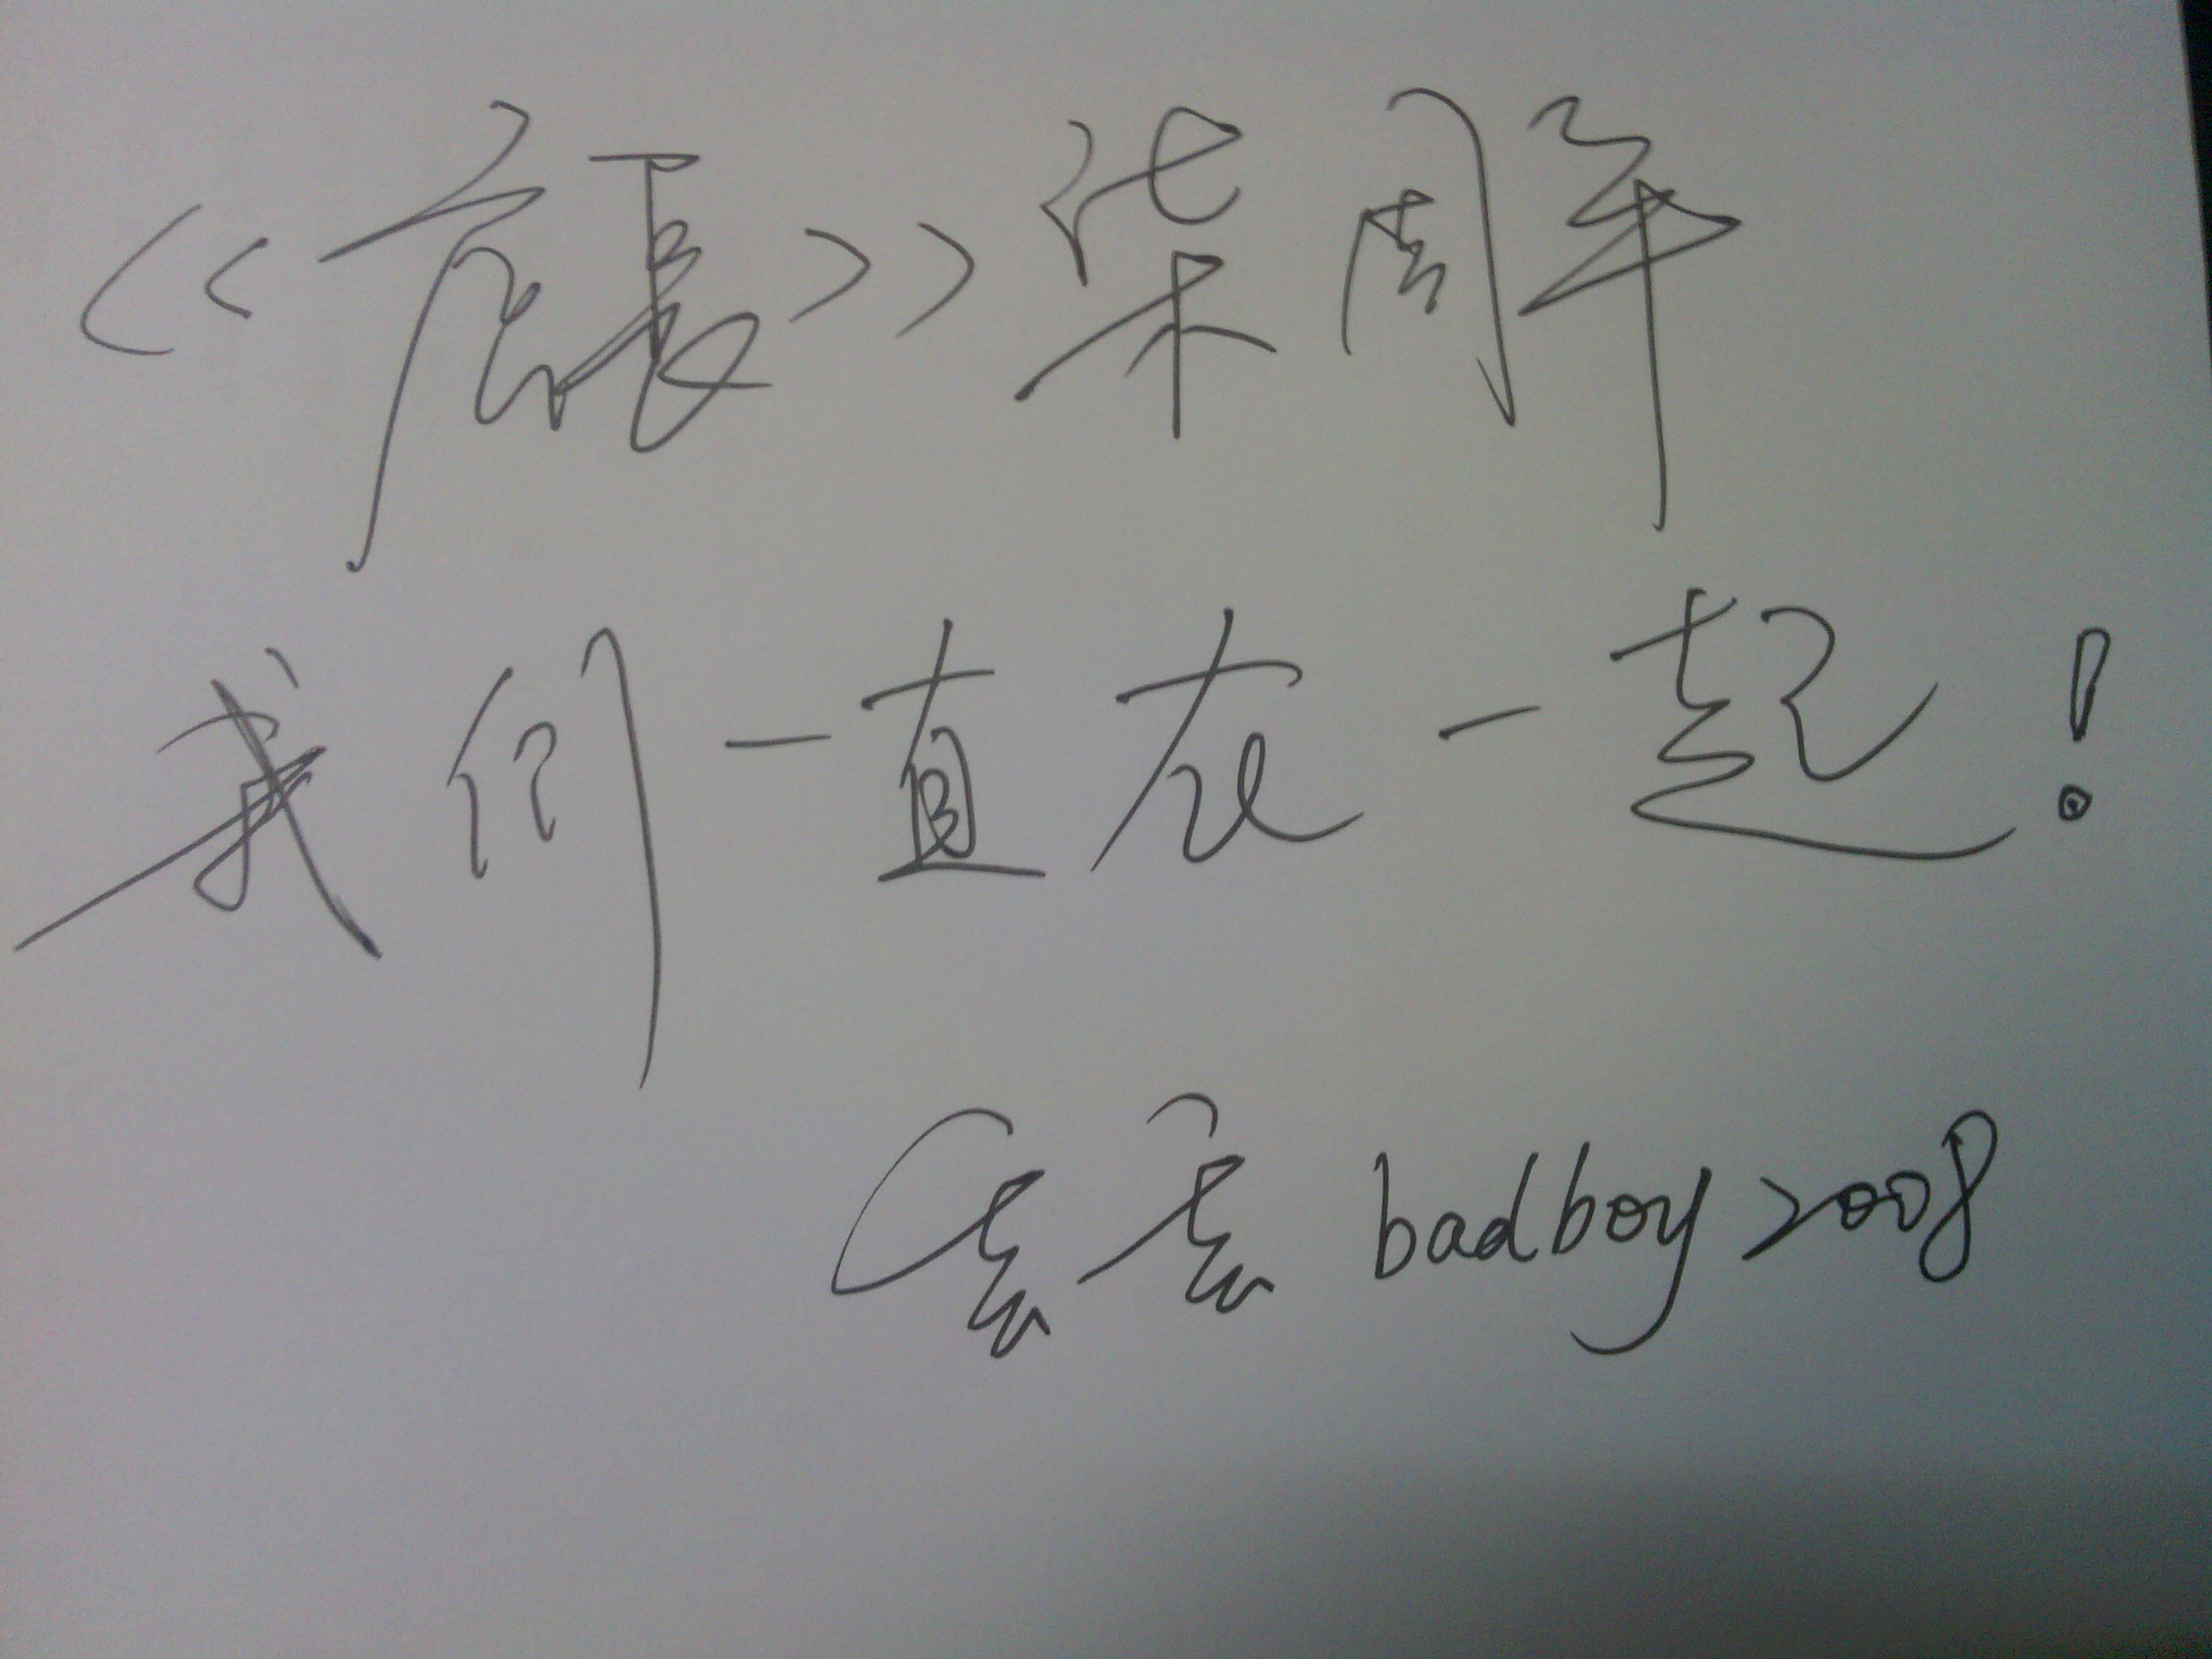 <<>>柒周年
我们一直在一起！
badboy2008